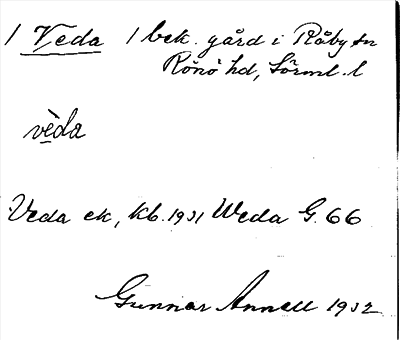 / Veda / bek. gård i Råby sn
Rönö hd, Sörml. l
vèda
Veda ek, kb. 1931 Weda G. 66
Gunnar Annell 1932